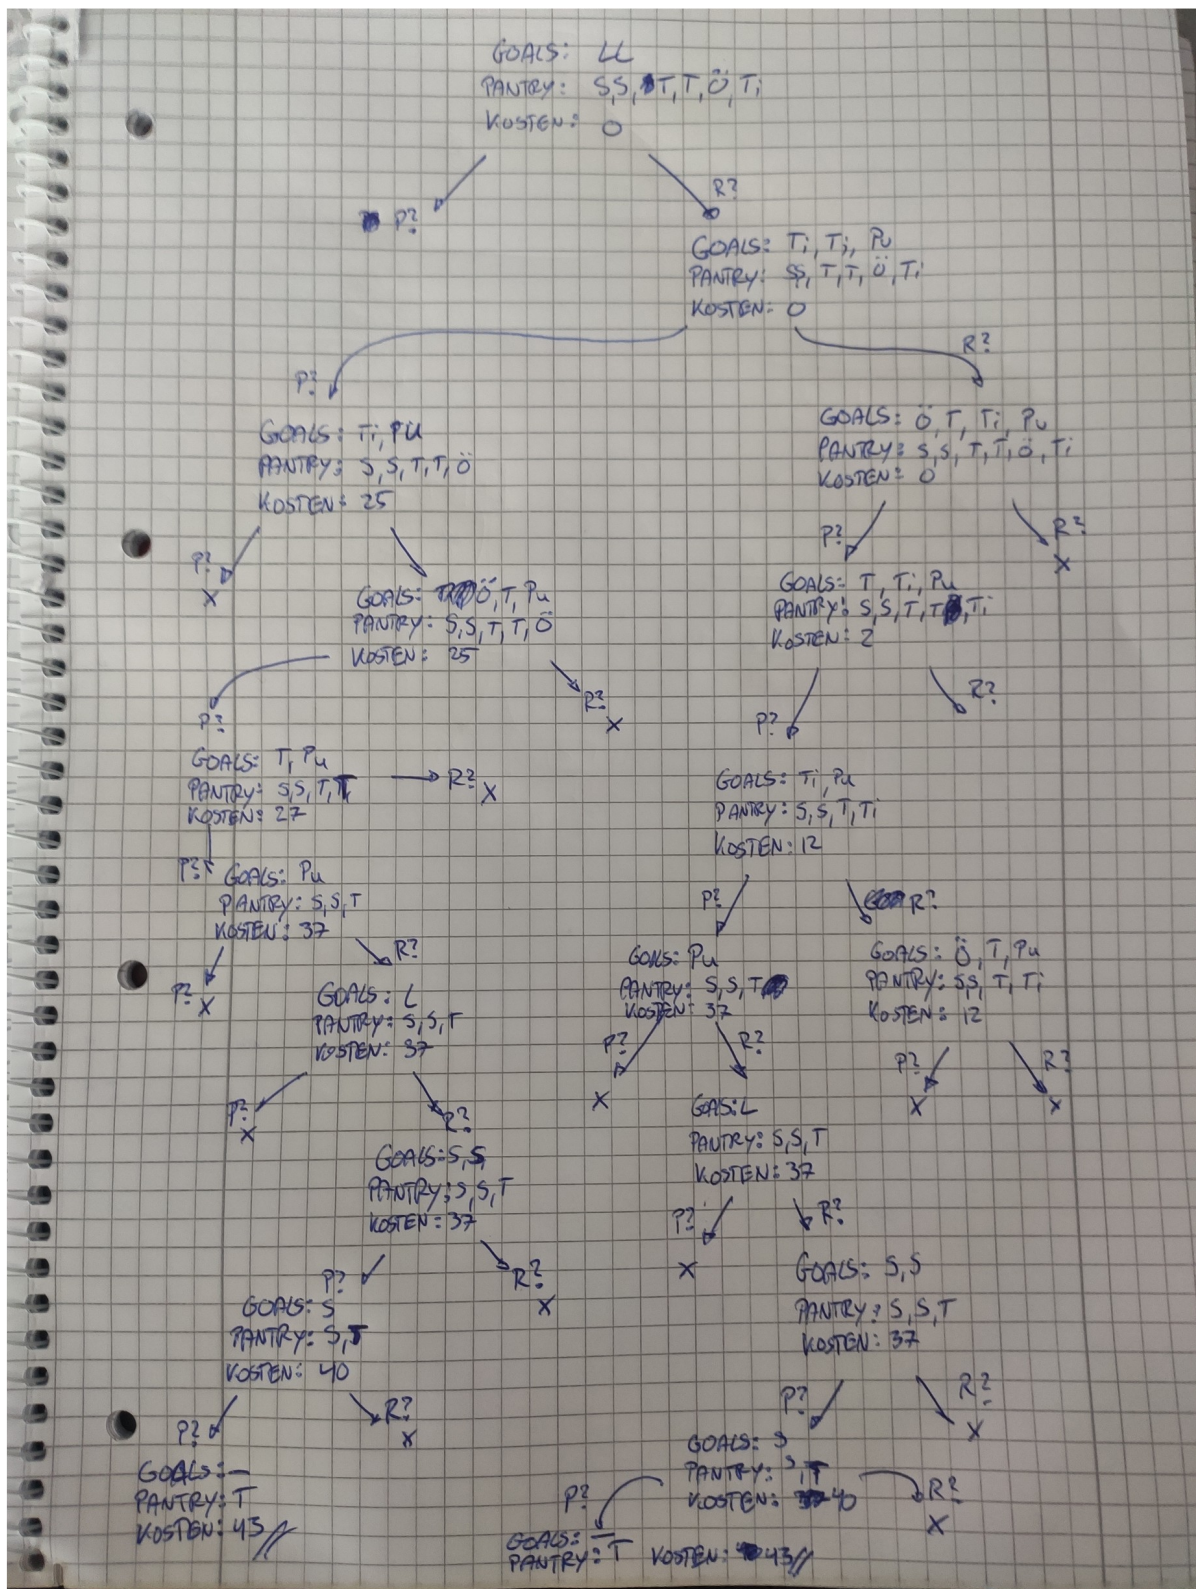 GOALS: LL
PANTRY: S,S,T,T,Ö,Ti
KOSTEN: 0
P?
R?
GOALS: Ti, Ti, Pu
PANTRY: SS, T,T, Ö, Ti
KOSTEN: 0
P?
R?
GOALS: Ti, Pu
PANTRY: S, S, T, T, Ö
KOSTEN: 25
GOALS: Ö, T, Ti, Pu
PANTRY: S, S, T, T, Ö, Ti
KOSTEN: 0
P?
X
P?
R?
X
GOALS: Ö, T, Pu
PANTRY: S, S, T, T, Ö
KOSTEN: 25
GOALS: T, Ti, Pu
PANTRY: S, S, T, T, Ti
KOSTEN: 2
P?
R?
X
P?
R?
GOALS: T, Pu
PANTRY: S,S, T,T
KOSTEN: 27
R?
X
GOALS: Ti, Pu
PANTRY: S, S, T, Ti
KOSTEN: 12
P?
GOALS: Pu
PANTRY: S, S, T
KOSTEN: 37
P?
R?
P?
X
R?
GOALS: L
PANTRY: S, S, T
KOSTEN: 37
GOALS: Pu
PANTRY: S, S, T
KOSTEN: 37
GOALS: Ö, T, Pu
PANTRY: SS, T, Ti
KOSTEN: 12
P?
X
R?
P?
X
R?
P?
X
R?
X
GOALS: S, S
PANTRY: S, S, T
KOSTEN: 37
GOAS: L
PANTRY: S, S, T
KOSTEN: 37
P?
R?
X
P?
X
R?
GOALS: S
PANTRY: S, T
KOSTEN: 40
GOALS: S, S
PANTRY: S, S, T
KOSTEN: 37
P?
R?
X
P?
R?
X
GOALS: —
PANTRY: T
KOSTEN: 43//
GOALS: S
PANTRY: S, T
KOSTEN: 40
P?
R?
X
GOALS: —
PANTRY: T KOSTEN: 43//